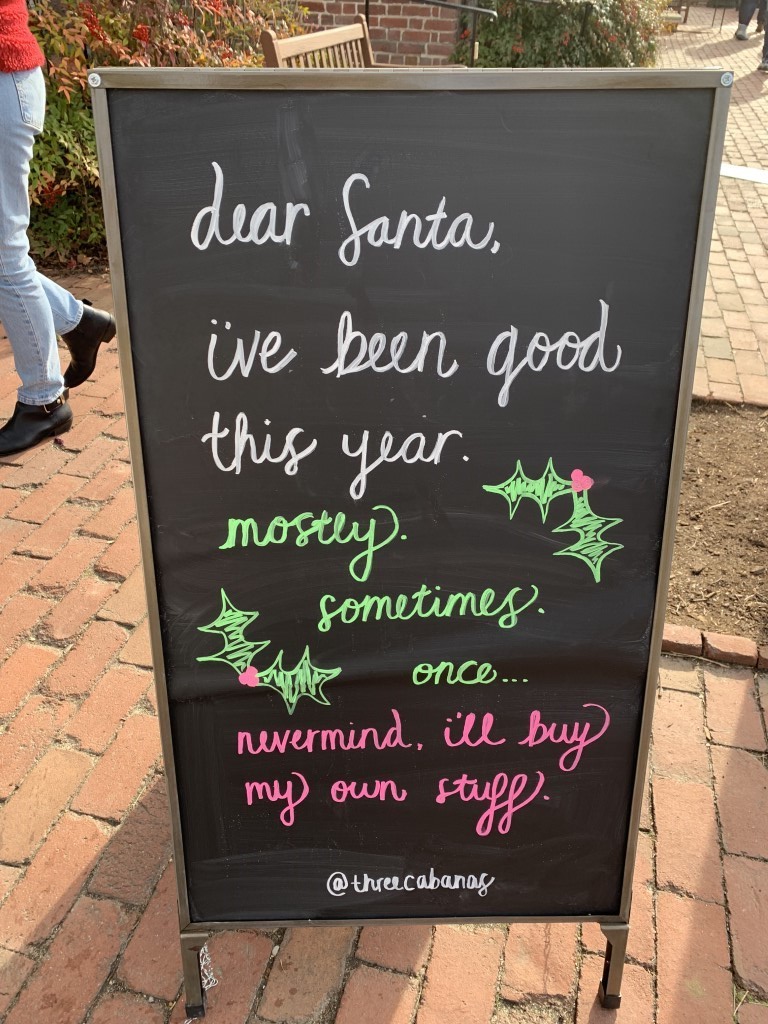 dear Santa,
i've been good
this year.
mostly.
sometimes.
once...
nevermind, i'll buy
my own stuff.
@threecabanas